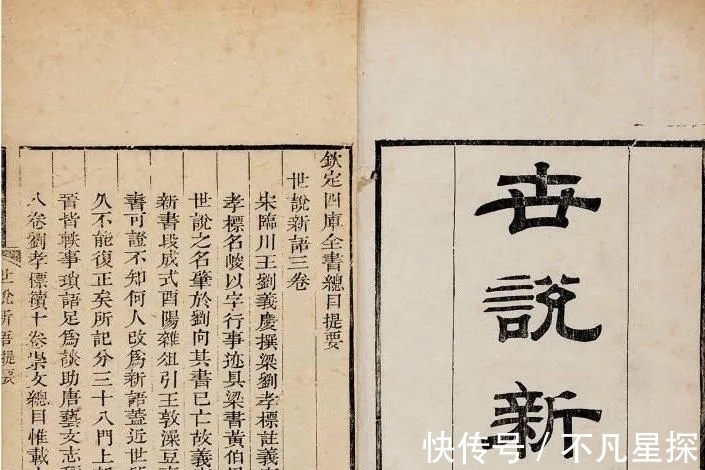 世說新
欽定四庫全書總目提要
世說新語三卷
宋臨川王劉義慶撰梁劉孝標註義
孝標名峻以字行事迹具梁書黃伯
世說之名肇於劉向其書已亡故義
新書段成式酉陽雜俎引王敦澡豆
書可證不知何人改爲新語蓋近世
久不能復正矣所記分三十八門上
晉皆軼事瑣語足爲談助唐藝文志
八卷劉孝標續十卷崇文總目惟載
世說新語提要
快传号 / 不凡星探